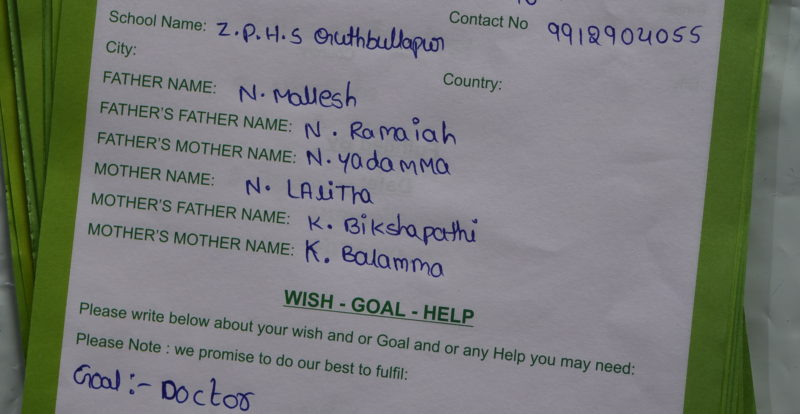 School Name: Z.P.H.S Gruthbullapur
Contact No 9912904055
City:
Country:
FATHER NAME: N. Mallesh
FATHER'S FATHER NAME: N. Ramaiah
FATHER'S MOTHER NAME: N. Yadamma
MOTHER NAME: N. LAliTha
MOTHER'S FATHER NAME: K. Bikshapathi
MOTHER'S MOTHER NAME: K. Balamma
WISH - GOAL - HELP
Please write below about your wish and or Goal and or any Help you may need:
Please Note : we promise to do our best to fulfil:
Goal :- Doctor